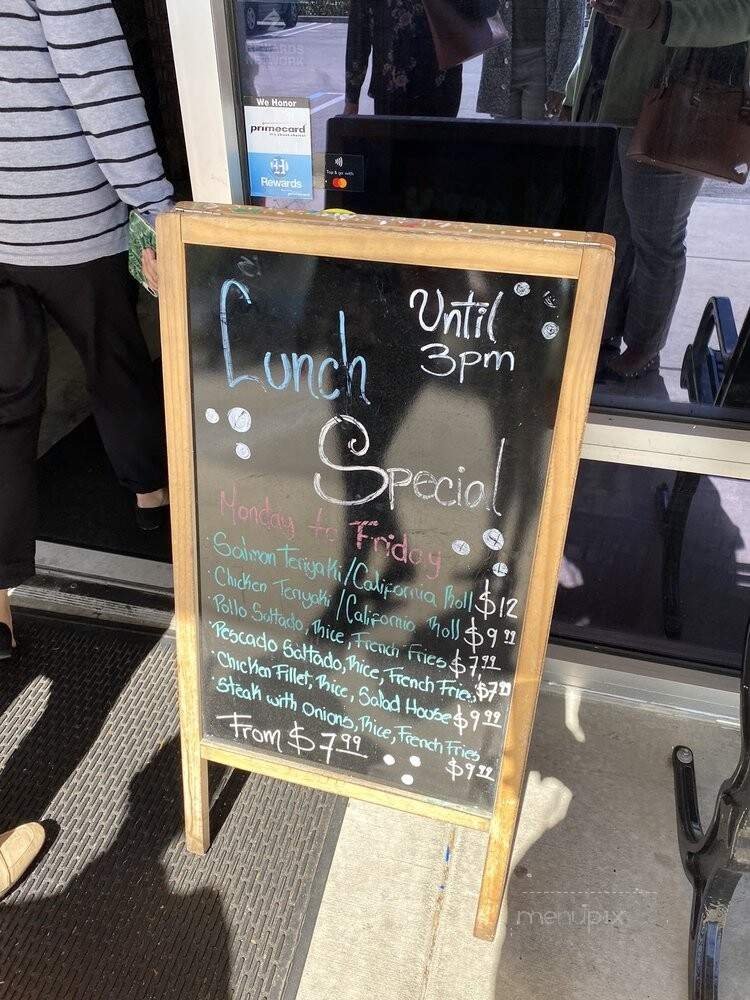 REWARDS
NETWORK
We Honor
primecard
Rewards
Tap & go with
Lunch
Until
3pm
Special
Monday to Friday
Salmon Teriyaki/California Roll $12
Chicken Teriyaki/California Roll $9.99
Pollo Saltado, Rice, French Fries $7.99
Pescado Saltado, Rice, French Fries, $7.99
Chicken Fillet, Rice, Salad House $9.99
Steak with Onions, Rice, French Fries $9.99
From $7.99
menupix